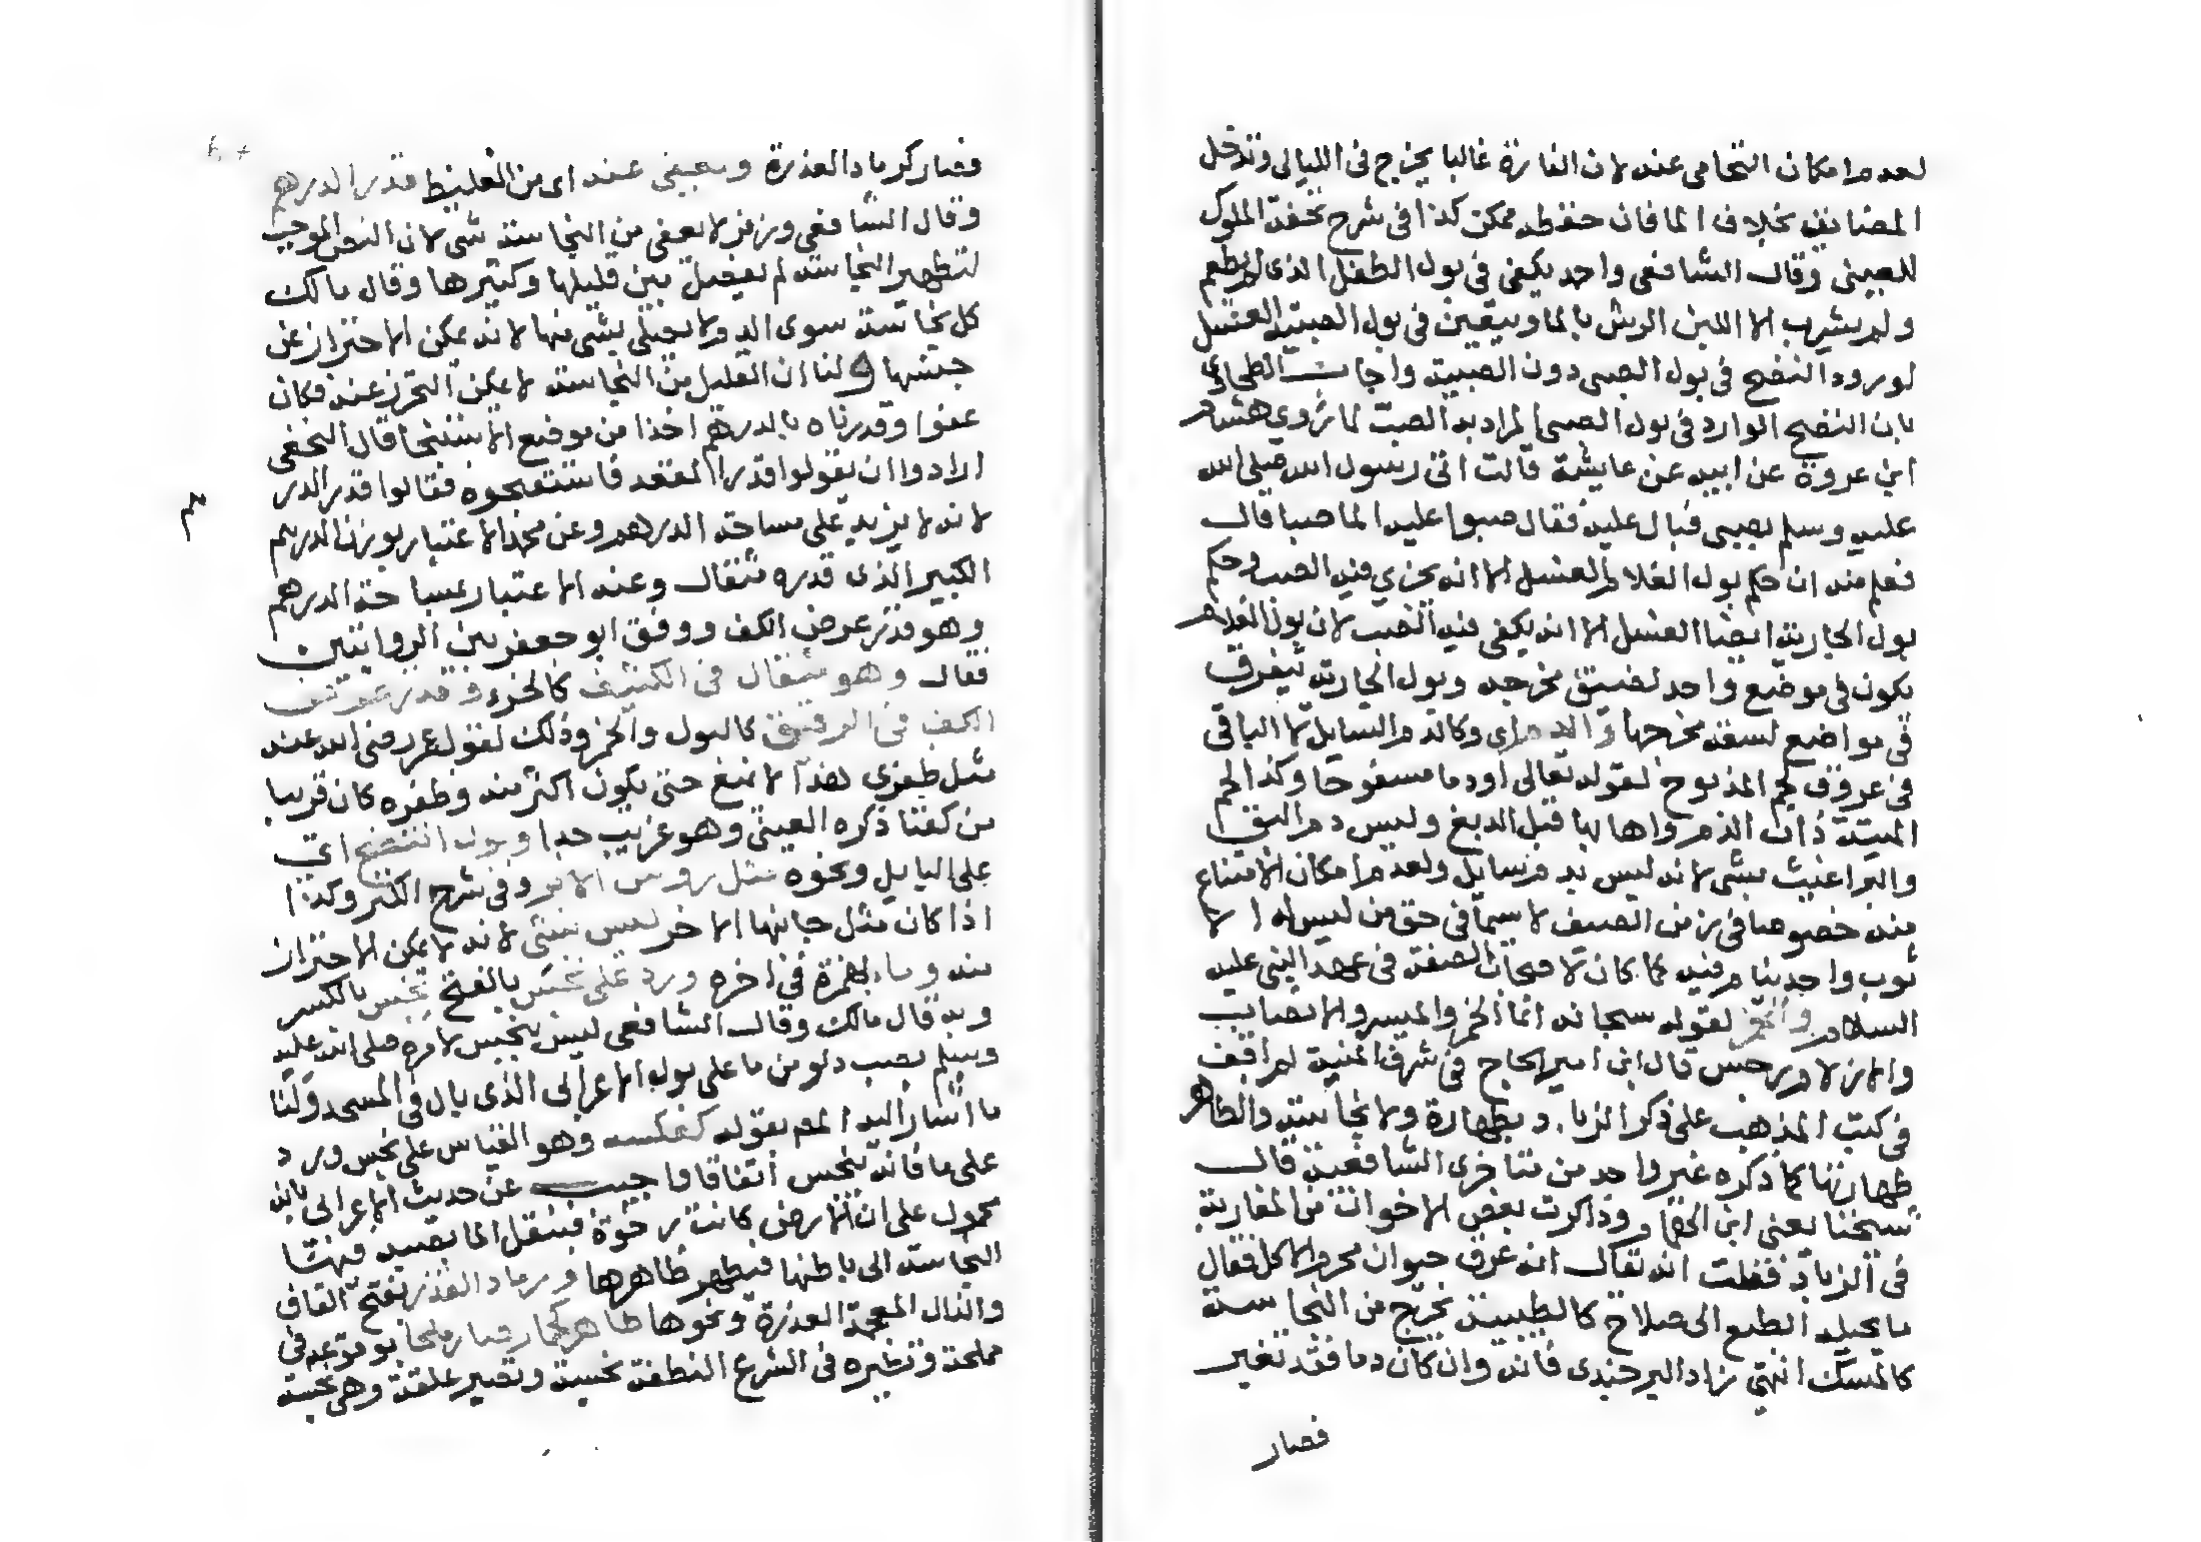 لعدم امكان التحامى عنه لان الفارة غالبا يخرج فى الليالى وتدخل
المضايق بخلاف الما فان حفظه ممكن كذا فى شرح تحفة الملوك
للعينى وقال الشافعى واحد يكفى فى بول الطفل الذى لم يطعم
ولم يشرب الا اللبن الرش بالما ويتعين فى بول الصبية الغسل
لورود النضح فى بول الصبى دون الصبية واجاب الطحاوى
بان النضح الوارد فى بول الصبى المراد به الصب لما روي هشام
ابن عروة عن ابيه عن عايشة قالت اتى رسول الله صلى الله
عليه وسلم بصبى فبال عليه فقال صبوا عليه الما صبا قال
فعلم منه ان حكم بول الغلام الغسل الا انه يجزي فيه الصب وحكم
بول الجارية ايضا الغسل الا انه يكفى فيه الصب لان بول الغلام
يكون فى موضع واحد لضيق مخرجه وبول الجارية يتفرق
فى مواضع لسعة مخرجها والدم اى وكالدم السايل لا الباقى
فى عروق لحم المذبوح لقوله تعالى اودما مسفوحا وكذا لحم
الميتة ذات الدم واهابها قبل الدبغ وليس دم البق
والبراغيث بشى لانه ليس بدم سايل ولعدم امكان الامتناع
منه خصوصا فى زمن الصيف لا سيما فى حق من ليس له الا
ثوب واحد ينام فيه كما كان لاصحاب الصفة فى عهد النبى عليه
السلام والخمر لقوله سبحانه انما الخمر والميسر والانصاب
والازلام رجس قال ابن امير الحاج فى شرف المنية لم اقف
فى كتب المذهب على ذكر الزباد بطهارة ولا نجاسة والظاهر
طهارتها كما ذكره غير واحد من متاخرى الشافعية قال
شيخنا يعنى ابن الهمام وذاكرت بعض الاخوان من المغاربة
فى الزباد فقلت انه يقال انه عرق حيوان محرم الاكل فقال
ما يحيله الطبع الى صلاح كالطيبية تخرج من النجاسة
كالمسك انتهى زاد البرجندى فانه وان كان دما فقد تغير
فصار
فصار كرماد العذرة ويعفى عنه اى من الغليظ قدر الدرهم
وقال الشافعى وزفر لا يعفى من النجاسة شى لان النص الموجب
لتطهير النجاسة لم يفصل بين قليلها وكثيرها وقال مالك
كل نجاسة سوى الدم ولا يصلى بشى منها لانه يمكن الاحتراز عن
جنسها ولنا ان القليل من النجاسة لا يمكن التحرز عنه فكان
عفوا وقدرناه بالدرهم اخذا من موضع الاستنجا قال النخعى
ارادوا ان يقولوا قدر المقعد فاستقبحوه فقالوا قدر الدر
لانه لا يزيد على مساحة الدرهم وعن محمد الاعتبار بوزن الدرهم
الكبير الذى قدره مثقال وعنه الاعتبار بمساحة الدرهم
وهو قدر عرض الكف ووفق ابو جعفر بين الروايتين
فقال وهو مثقال فى الكثيف كالخرء وقدر عرض
الكف فى الرقيق كالبول والخمر وذلك لقول عمر رضى الله عنه
مثل ظفري هذا لا يمنع حتى يكون اكثر منه وظفره كان قريبا
من كفنا ذكره العينى وهو غريب جدا وبول انتضح اى
على البايل ونحوه مثل روس الابر وفى شرح الكنز وكذا
اذا كان مثل جانبها الاخر ليس بشى لانه لا يمكن الاحتراز
منه وماء بهمزة فى اخره ورد على نجس بالفتح نجس بالكسر
وبه قال مالك وقال الشافعى ليس بنجس لامره صلى الله عليه
وسلم بصب دلو من ما على بول الاعرابى الذى بال فى المسجد ولنا
ما اشار اليه المص بقوله كعكسه وهو القياس على نجس ورد
على ما فانه ينجس اتفاقا واجيب عن حديث الاعرابى بانه
محمول على ان الارض كانت رخوة فينقل الما بصبه فيها
النجاسة الى باطنها فيطهر ظاهرها ورماد القذر بفتح القاف
والذال المعجمة العذرة ونحوها طاهر كحمار صار ملحا بوقوعه فى
مملحة ونظيره فى الشرع النطفة نجسة وتصير علقة وهى نجسة